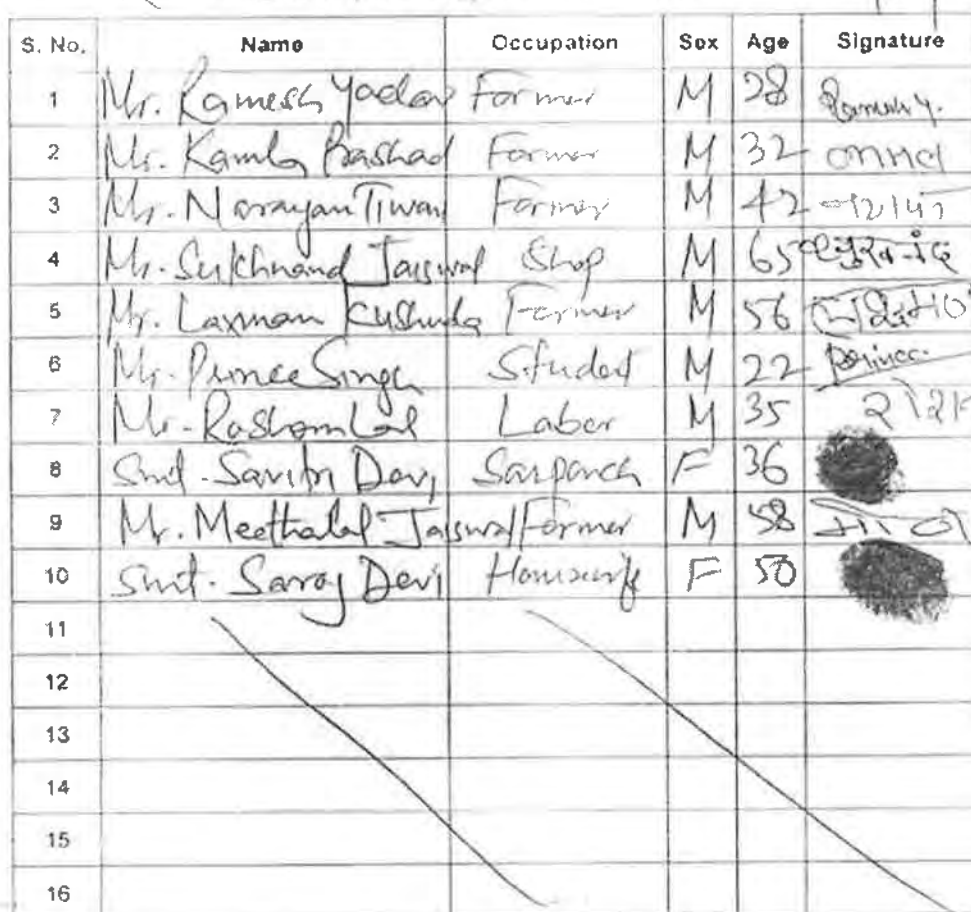 S. No. Name Occupation Sex Age Signature
1 Mr. Ramesh Yadav Former M 28 Ramesh Y.
2 Mr. Kamla Prashad Former M 32
3 Mr. Narayan Tiwari Former M 42
4 Mr. Sukhnand Jaiswal Shop M 65
5 Mr. Laxman Kushwaha Former M 56
6 Mr. Prince Singh Student M 22 Prince
7 Mr. Rashom Lal Labor M 35
8 Smt. Savitri Devi Sarpanch F 36
9 Mr. Meethalal Jaiswal Former M 58
10 Smt. Saroj Devi Housewife F 50
11
12
13
14
15
16